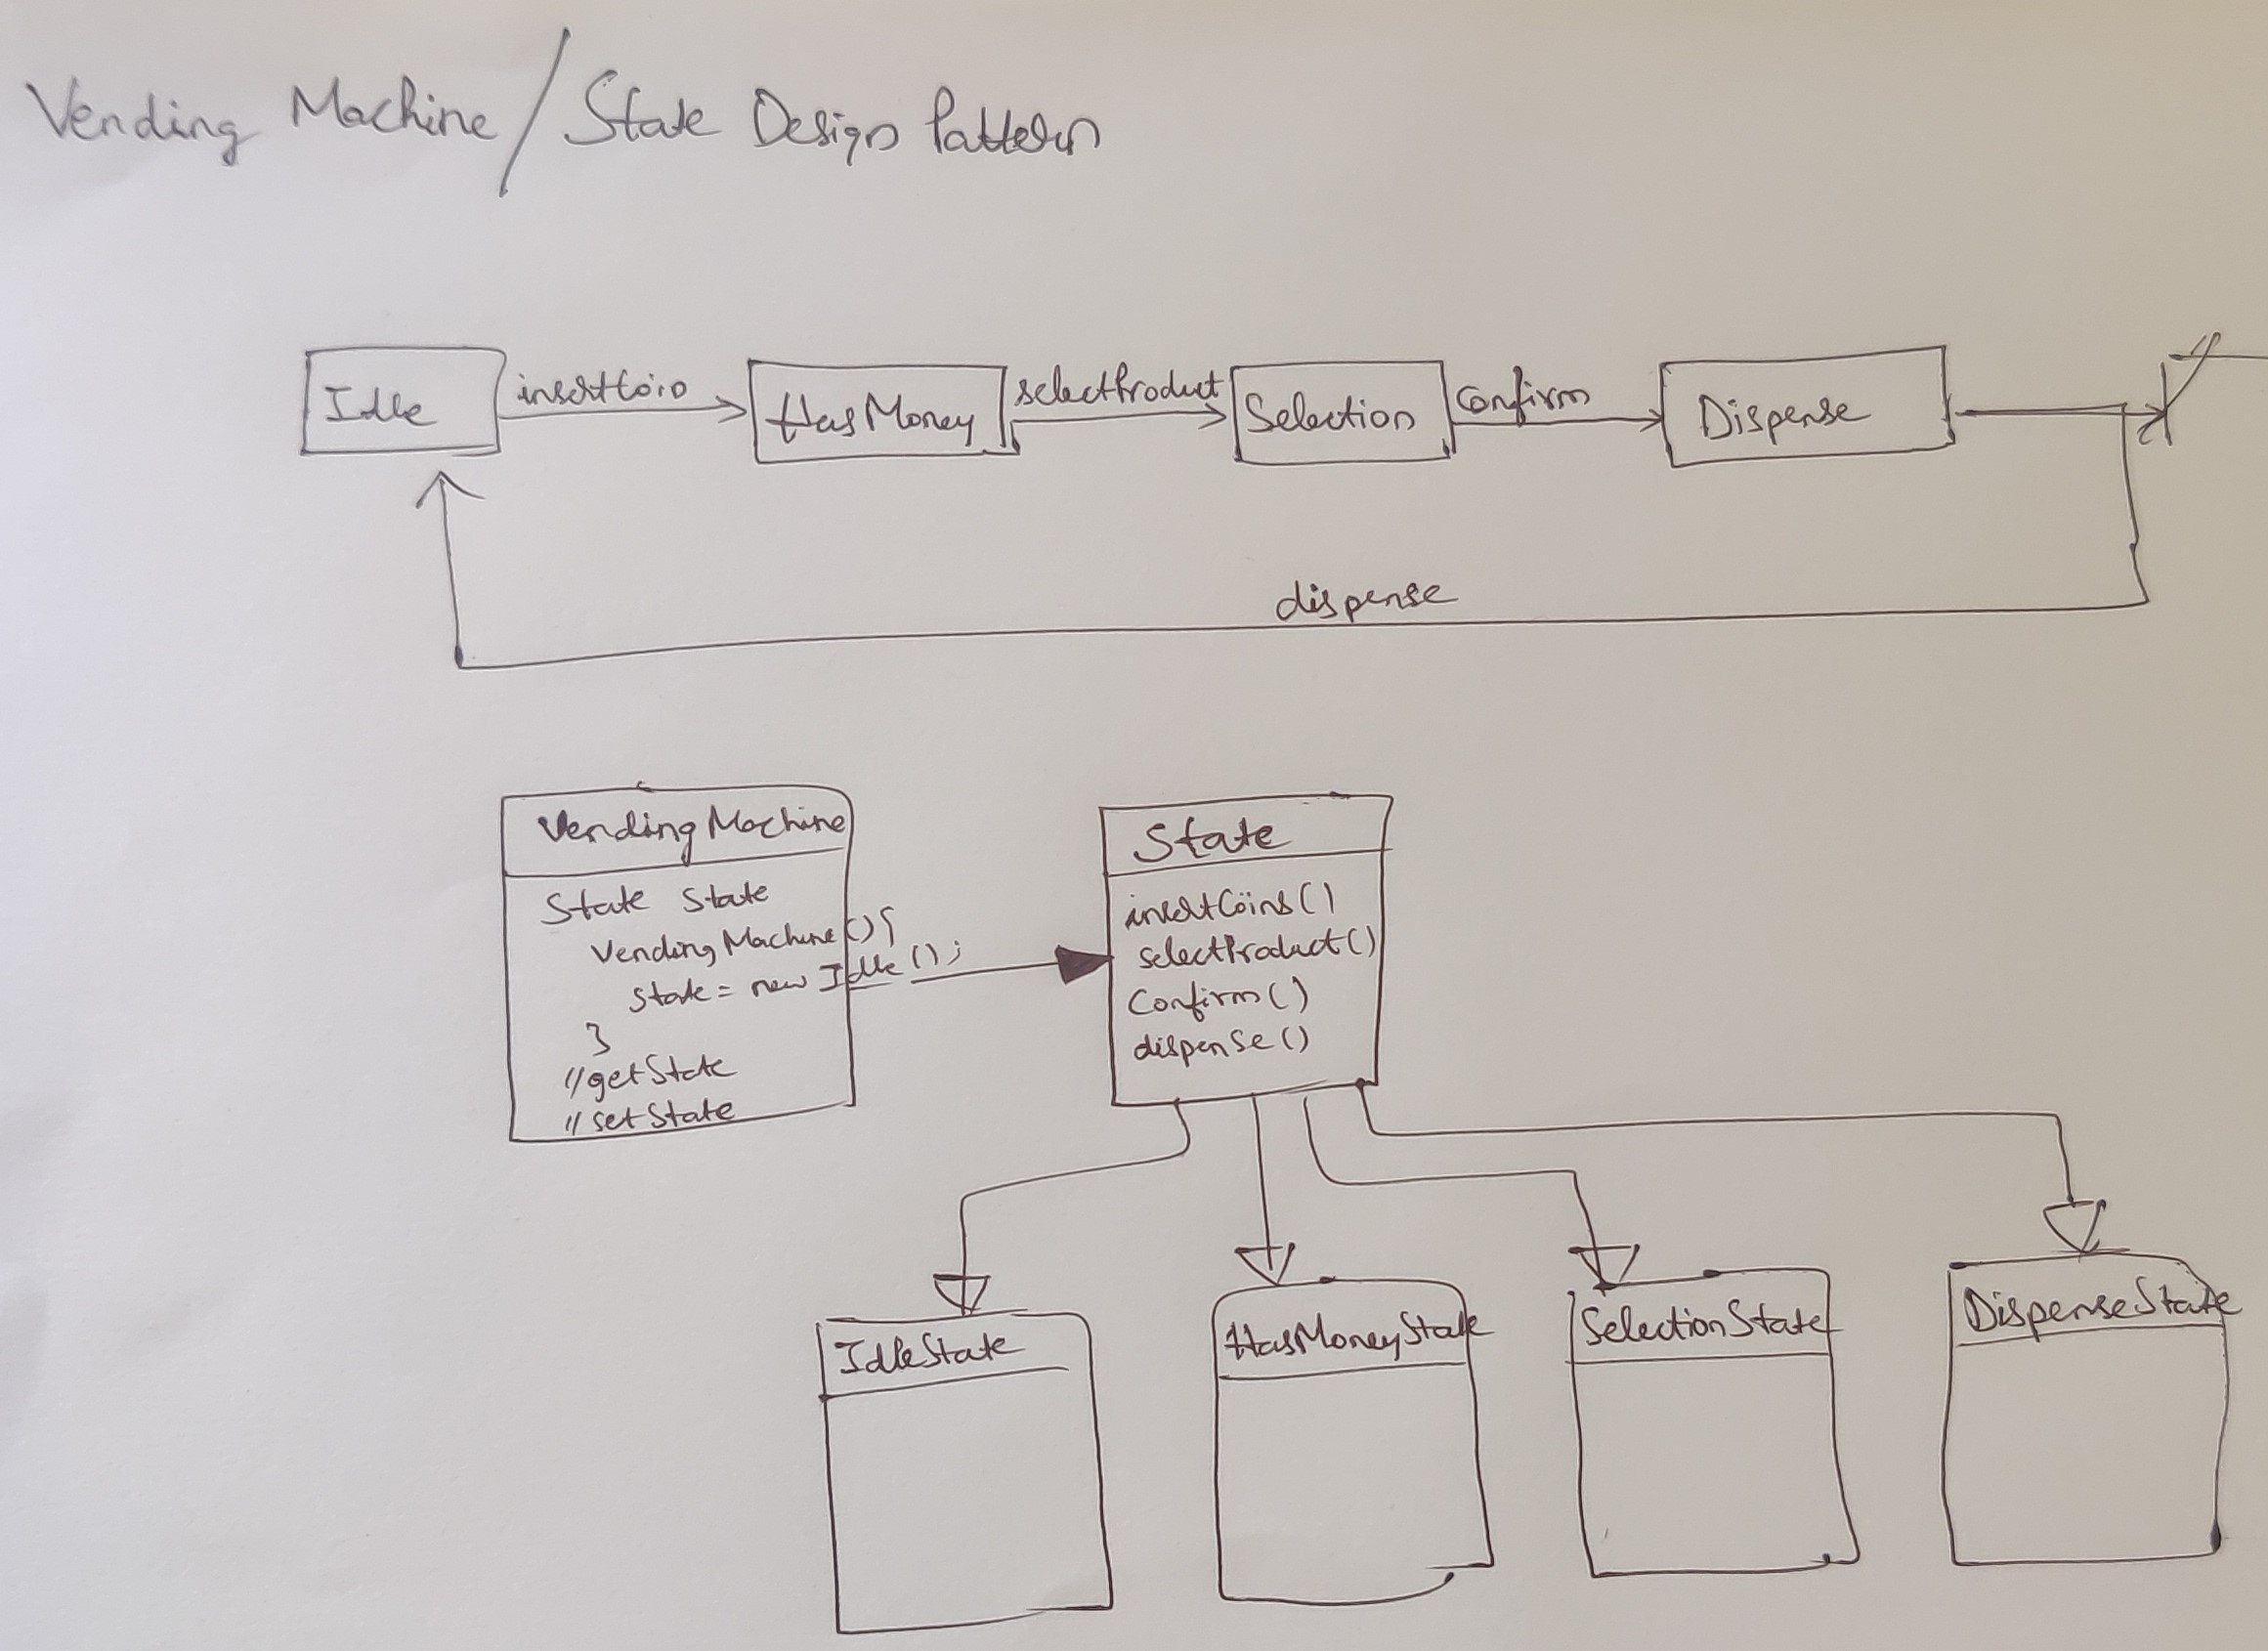 Vending Machine / State Design Pattern
Idle
insertCoin
HasMoney
selectProduct
Selection
Confirm
Dispense
dispense
VendingMachine
State state
VendingMachine(){
state = new Idle();
}
//getState
//setState
State
insertCoins()
selectProduct()
Confirm()
dispense()
IdleState
HasMoneyState
SelectionState
DispenseState